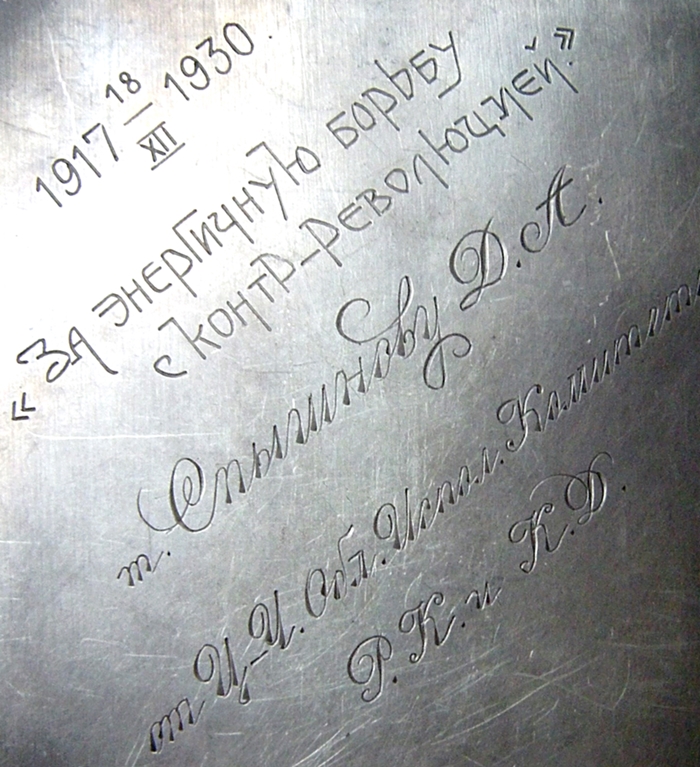 1917 18/XII 1930.
«ЗА ЭНЕРГИЧНУЮ БОРЬБУ
С КОНТР-РЕВОЛЮЦИЕЙ.»
т. Спышнову Д. А.
от Ц-Ч. Обл. Испол. Комитета
Р. К. и К. Д.